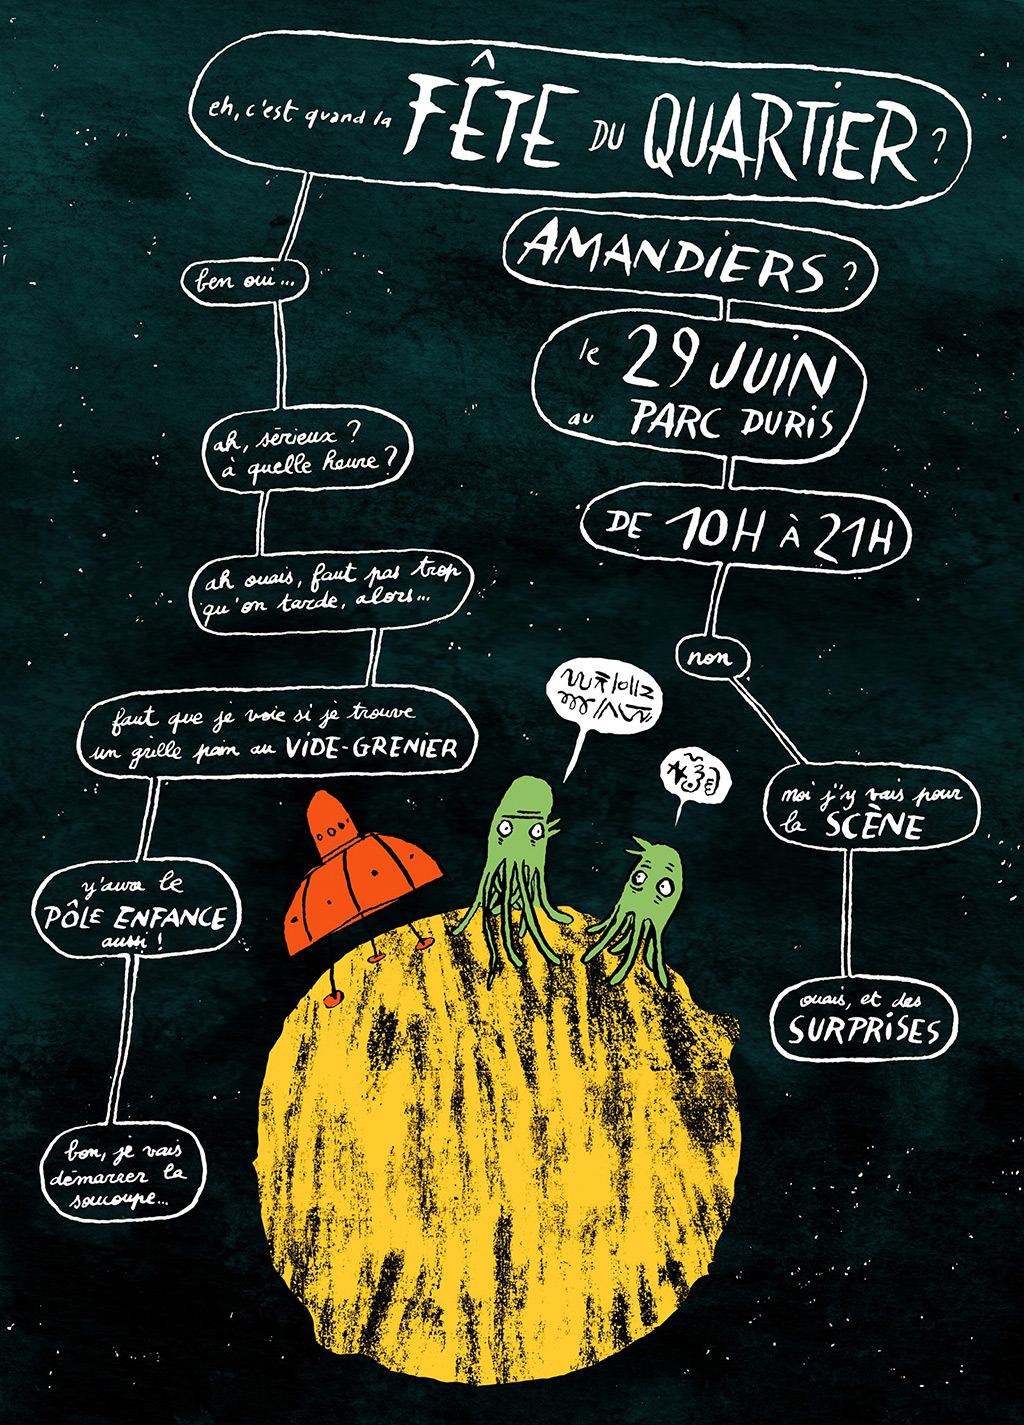 eh, c'est quand la FÊTE DU QUARTIER ?
AMANDIERS ?
ben oui...
le 29 JUIN
au PARC DURIS
ah, sérieux ?
à quelle heure ?
DE 10H À 21H
ah ouais, faut pas trop
qu'on tarde, alors...
non
faut que je voie si je trouve
un grille pain au VIDE-GRENIER
moi j'y vais pour
la SCÈNE
y'aura le
PÔLE ENFANCE
aussi !
ouais, et des
SURPRISES
bon, je vais
démarrer la
soucoupe...